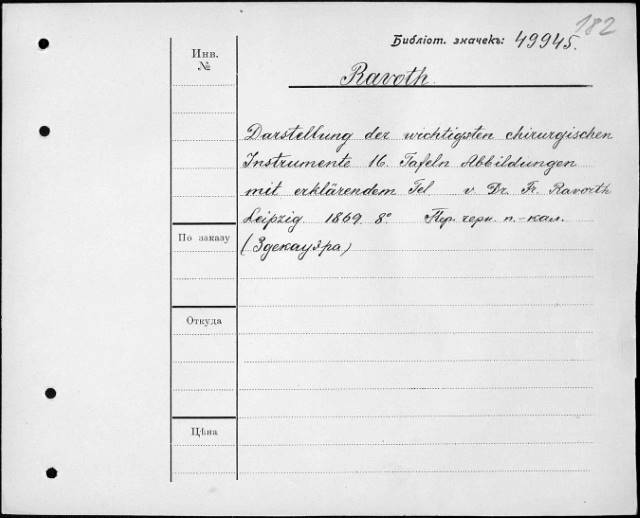 182
Библіот. значекъ: 49945.
Инв.
№
Ravoth.
Darstellung der wichtigsten chirurgischen
Instrumente 16. Tafeln Abbildungen
mit erklärendem Tel v Dr. Fr. Ravorth
Leipzig 1869. 8° Пер. черн. п.-кал.
(Здекауэра)
По заказу
Откуда
Цѣна